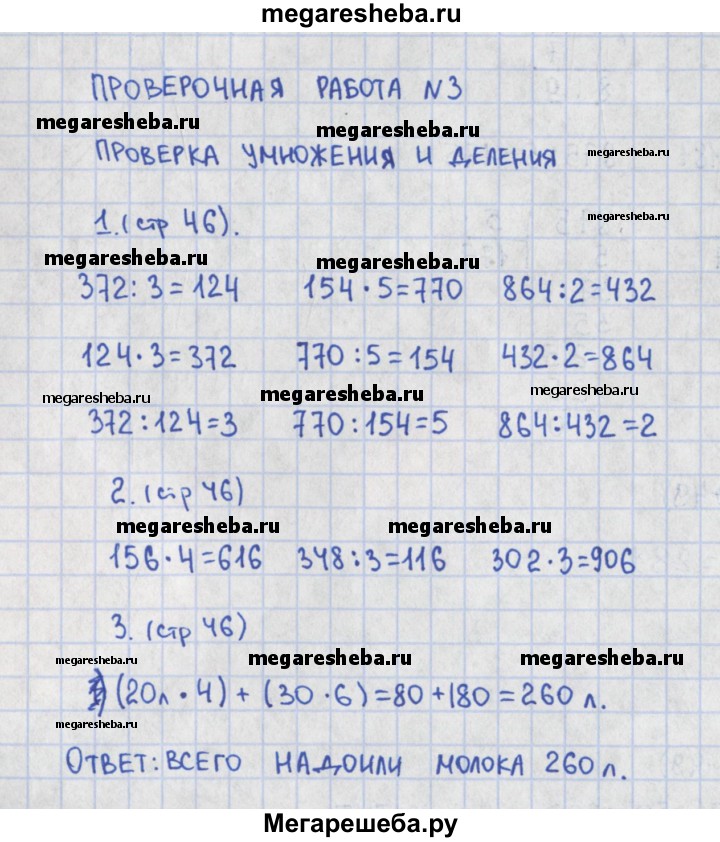 megaresheba.ru
ПРОВЕРОЧНАЯ РАБОТА №3
megaresheba.ru megaresheba.ru
ПРОВЕРКА УМНОЖЕНИЯ И ДЕЛЕНИЯ megaresheba.ru
1.(стр 46). megaresheba.ru
megaresheba.ru megaresheba.ru
372:3=124 154·5=770 864:2=432
124·3=372 770:5=154 432·2=864
megaresheba.ru megaresheba.ru megaresheba.ru
372:124=3 770:154=5 864:432=2
2.(стр 46)
megaresheba.ru megaresheba.ru
156·4=616 348:3=116 302·3=906
3.(стр 46)
megaresheba.ru megaresheba.ru megaresheba.ru
(20л·4)+(30·6)=80+180=260 л.
megaresheba.ru
ОТВЕТ: ВСЕГО НАДОИЛИ МОЛОКА 260 л.
Мегарешеба.ру